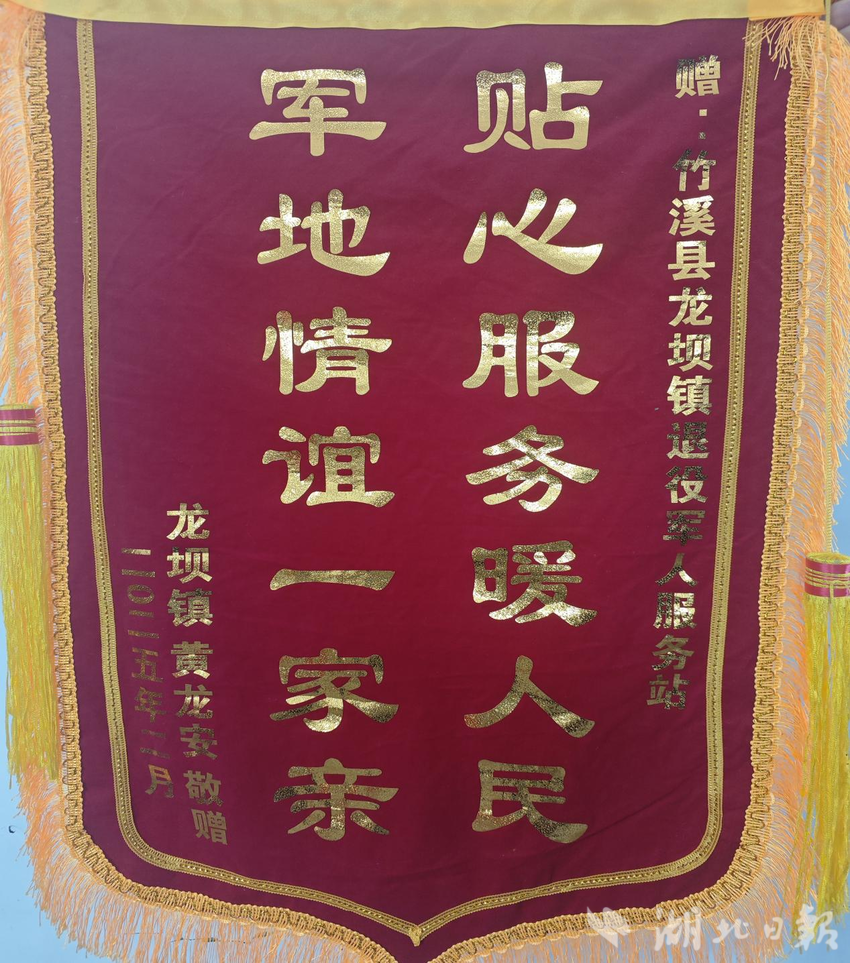 赠：竹溪县龙坝镇退役军人服务站
贴心服务暖人民
军地情谊一家亲
龙坝镇 黄龙安 敬赠
二〇二五年二月
湖北日報